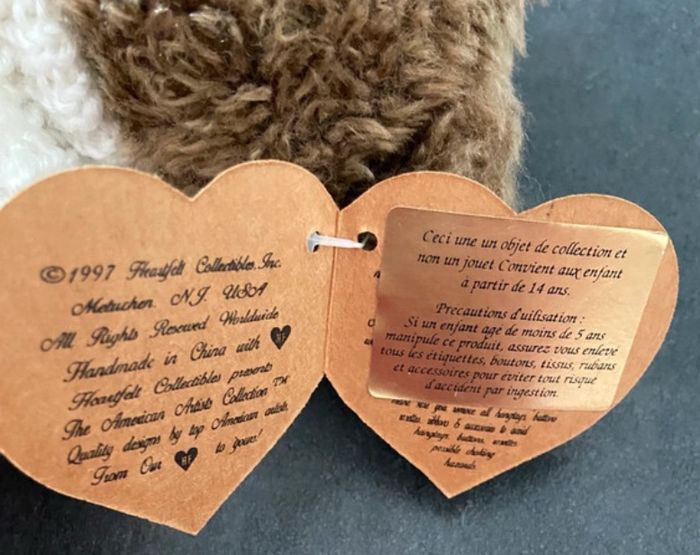 ©1997 Heartfelt Collectibles, Inc.
Metuchen, NJ, USA
All Rights Reserved Worldwide
Handmade in China with
HF
Heartfelt Collectibles presents
The American Artists Collection™
Quality designs by top American artists,
From Our HF to yours!
Ceci une un objet de collection et
non un jouet Convient aux enfant
à partir de 14 ans.
Precautions d'uilisation :
Si un enfant age de moins de 5 ans
manipule ce produit, assurez vous enleve
tous les étiquettes, boutons, tissus, rubans
et accessoires pour eviter tout risque
d'accident par ingestion.
you remove all hangtags, buttons
ribbons & accessories to avoid
hangtags, buttons,
possible choking
hazards.